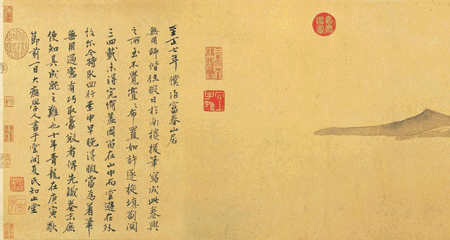 至正七年僕歸富春山居
無用師偕往暇日於南樓援筆寫成此卷興
之所至不覺亹亹布置如許逐旋填劄閱
三四載未得完備盖因留在山中而雲遊在外
故爾今特取回行李中早晚得暇當為著筆
無用過慮有巧取豪敚者俾先識卷末庶
使知其成就之難也十年青龍在庚寅歜
節前一日大癡學人書于雲間夏氏知止堂